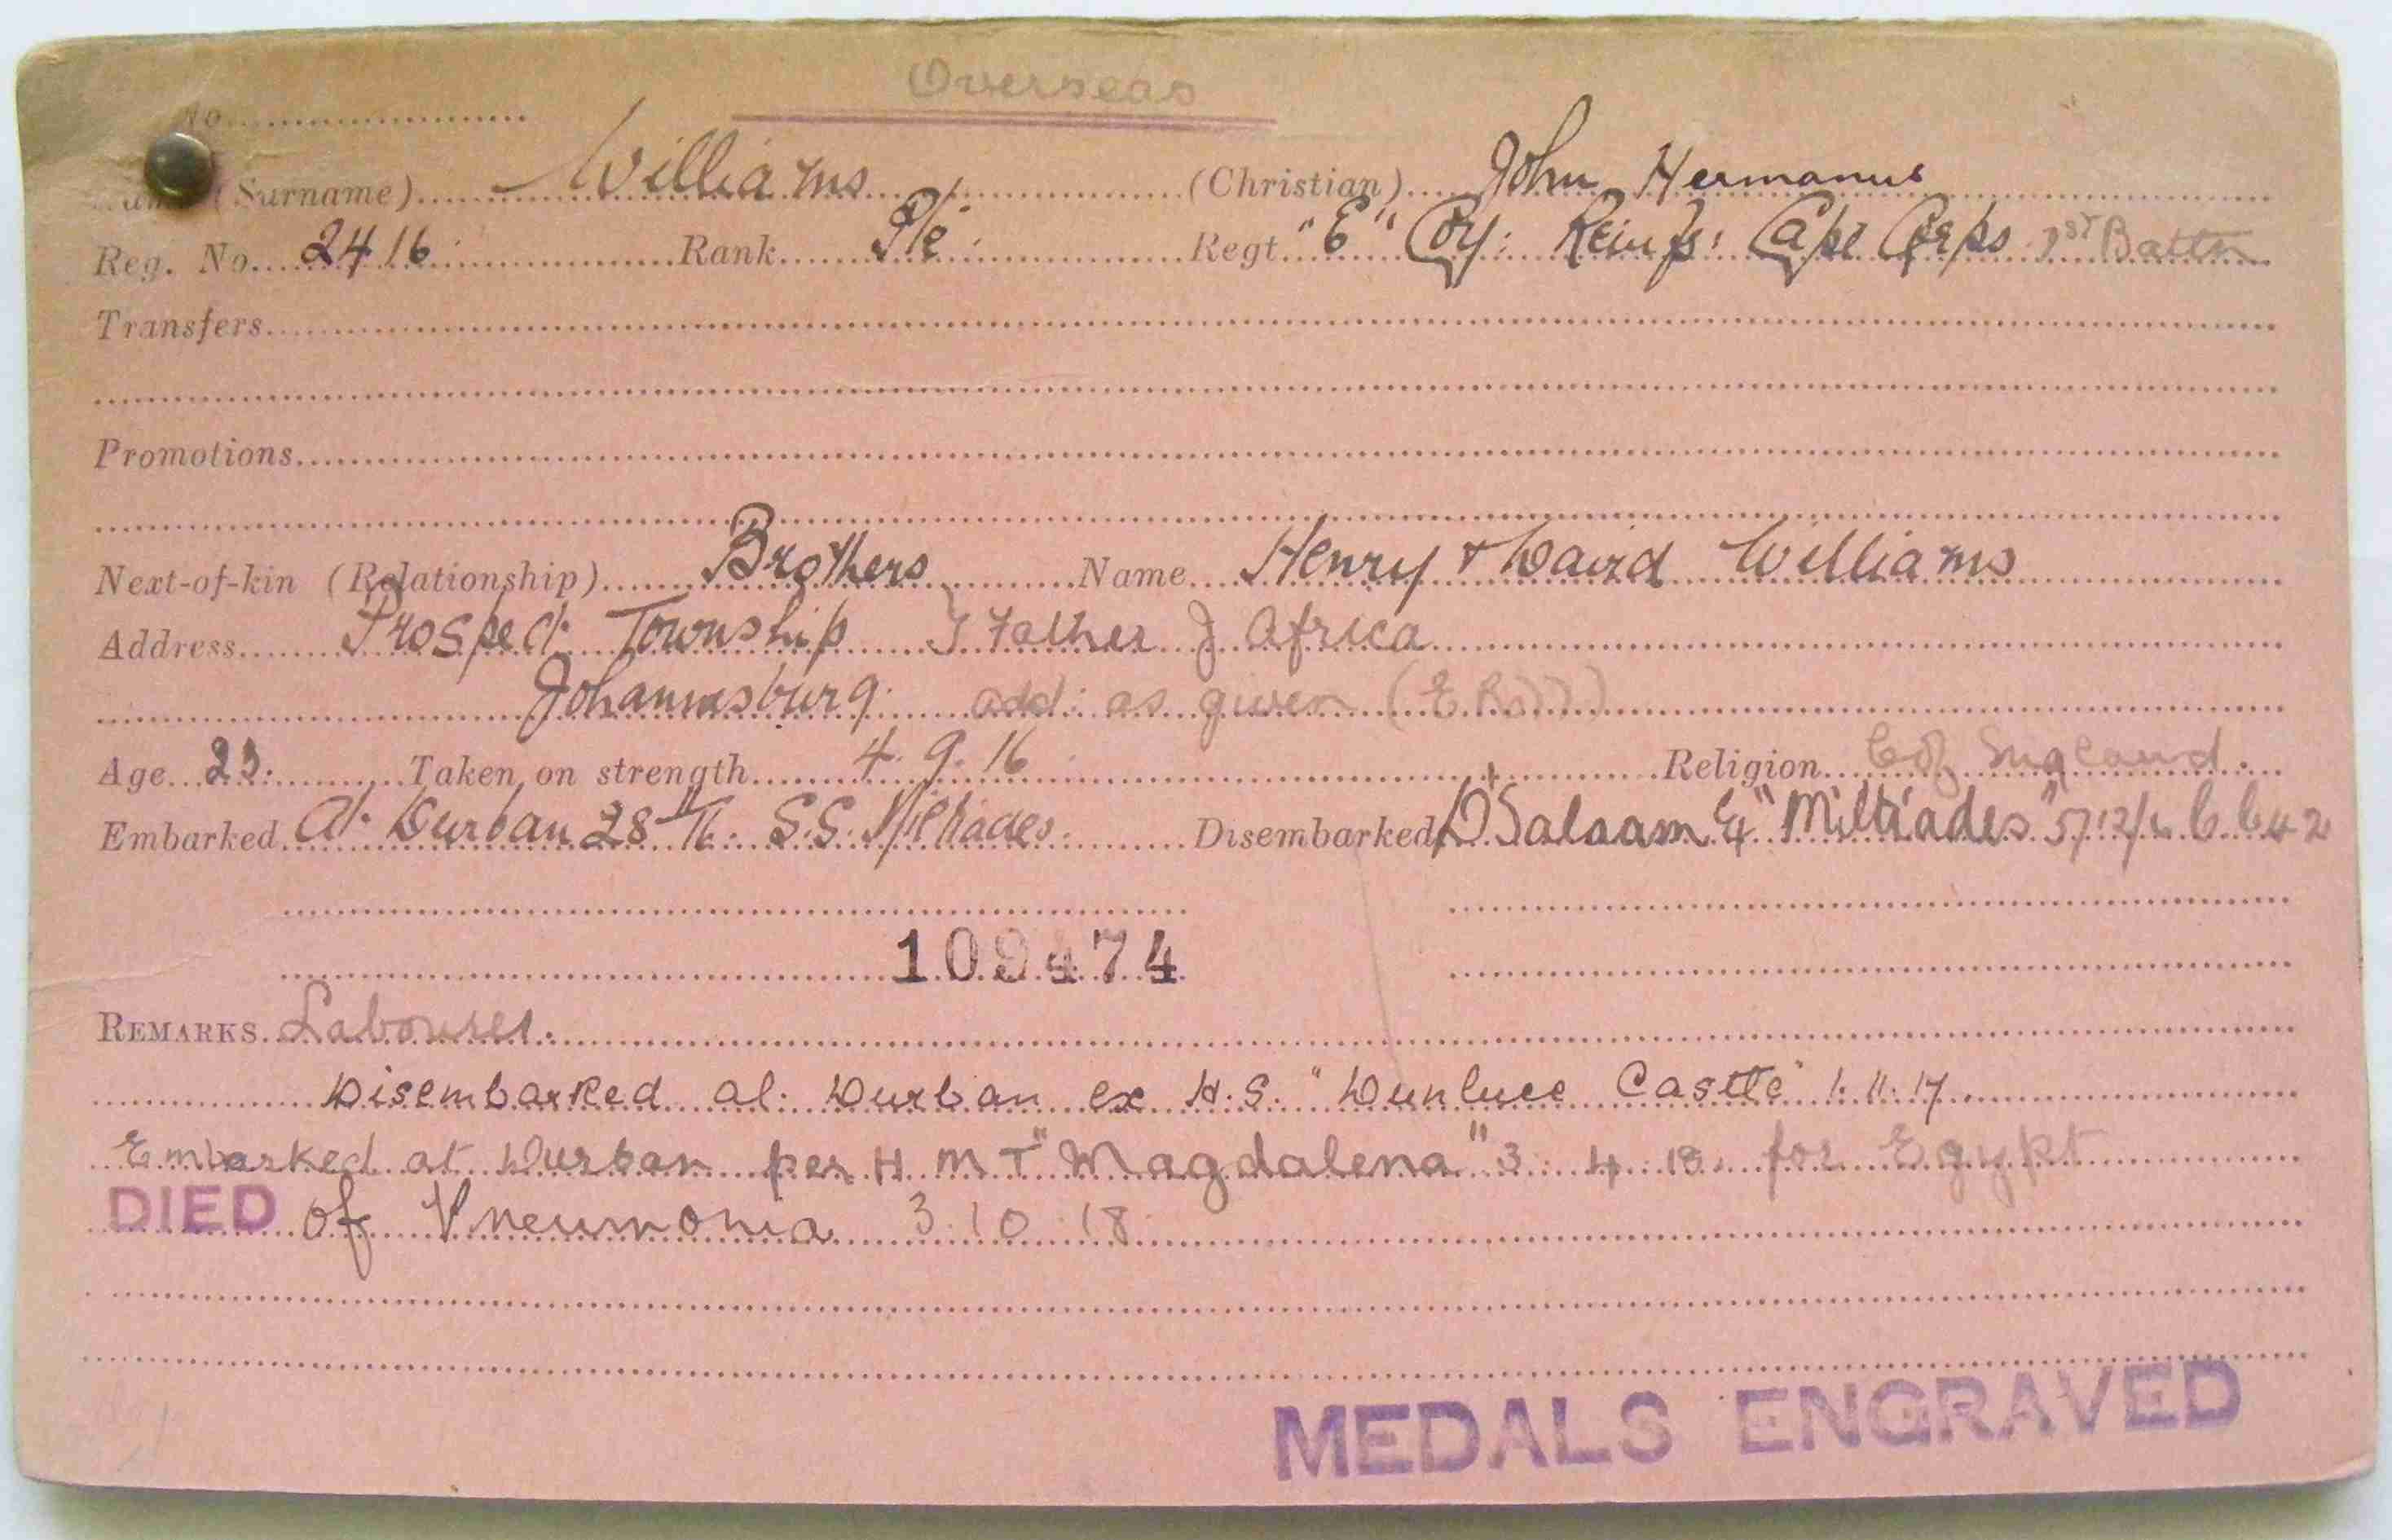 Overseas
No
(Surname) Williams (Christian) John Hermanus
Reg. No. 2416 Rank Pte. Regt "E" Coy: Reinfs: Cape Corps 1st Battn
Transfers
Promotions
Next-of-kin (Relationship) Brothers Name Henry & David Williams
Address Prospect Township Father J Africa
Johannesburg. add: as given
Age 23. Taken on strength 4.9.16 Religion C of England.
Embarked At Durban 28 S.S. Miltiades. Disembarked D'Salaam "Miltiades"
109474
REMARKS. Labourer.
Disembarked at Durban ex H.S. "Dunluce Castle" 1.11.17.
Embarked at Durban per H M T "Magdalena" 3. 4. 18. for Egypt
DIED of Pneumonia 3.10.18
MEDALS ENGRAVED